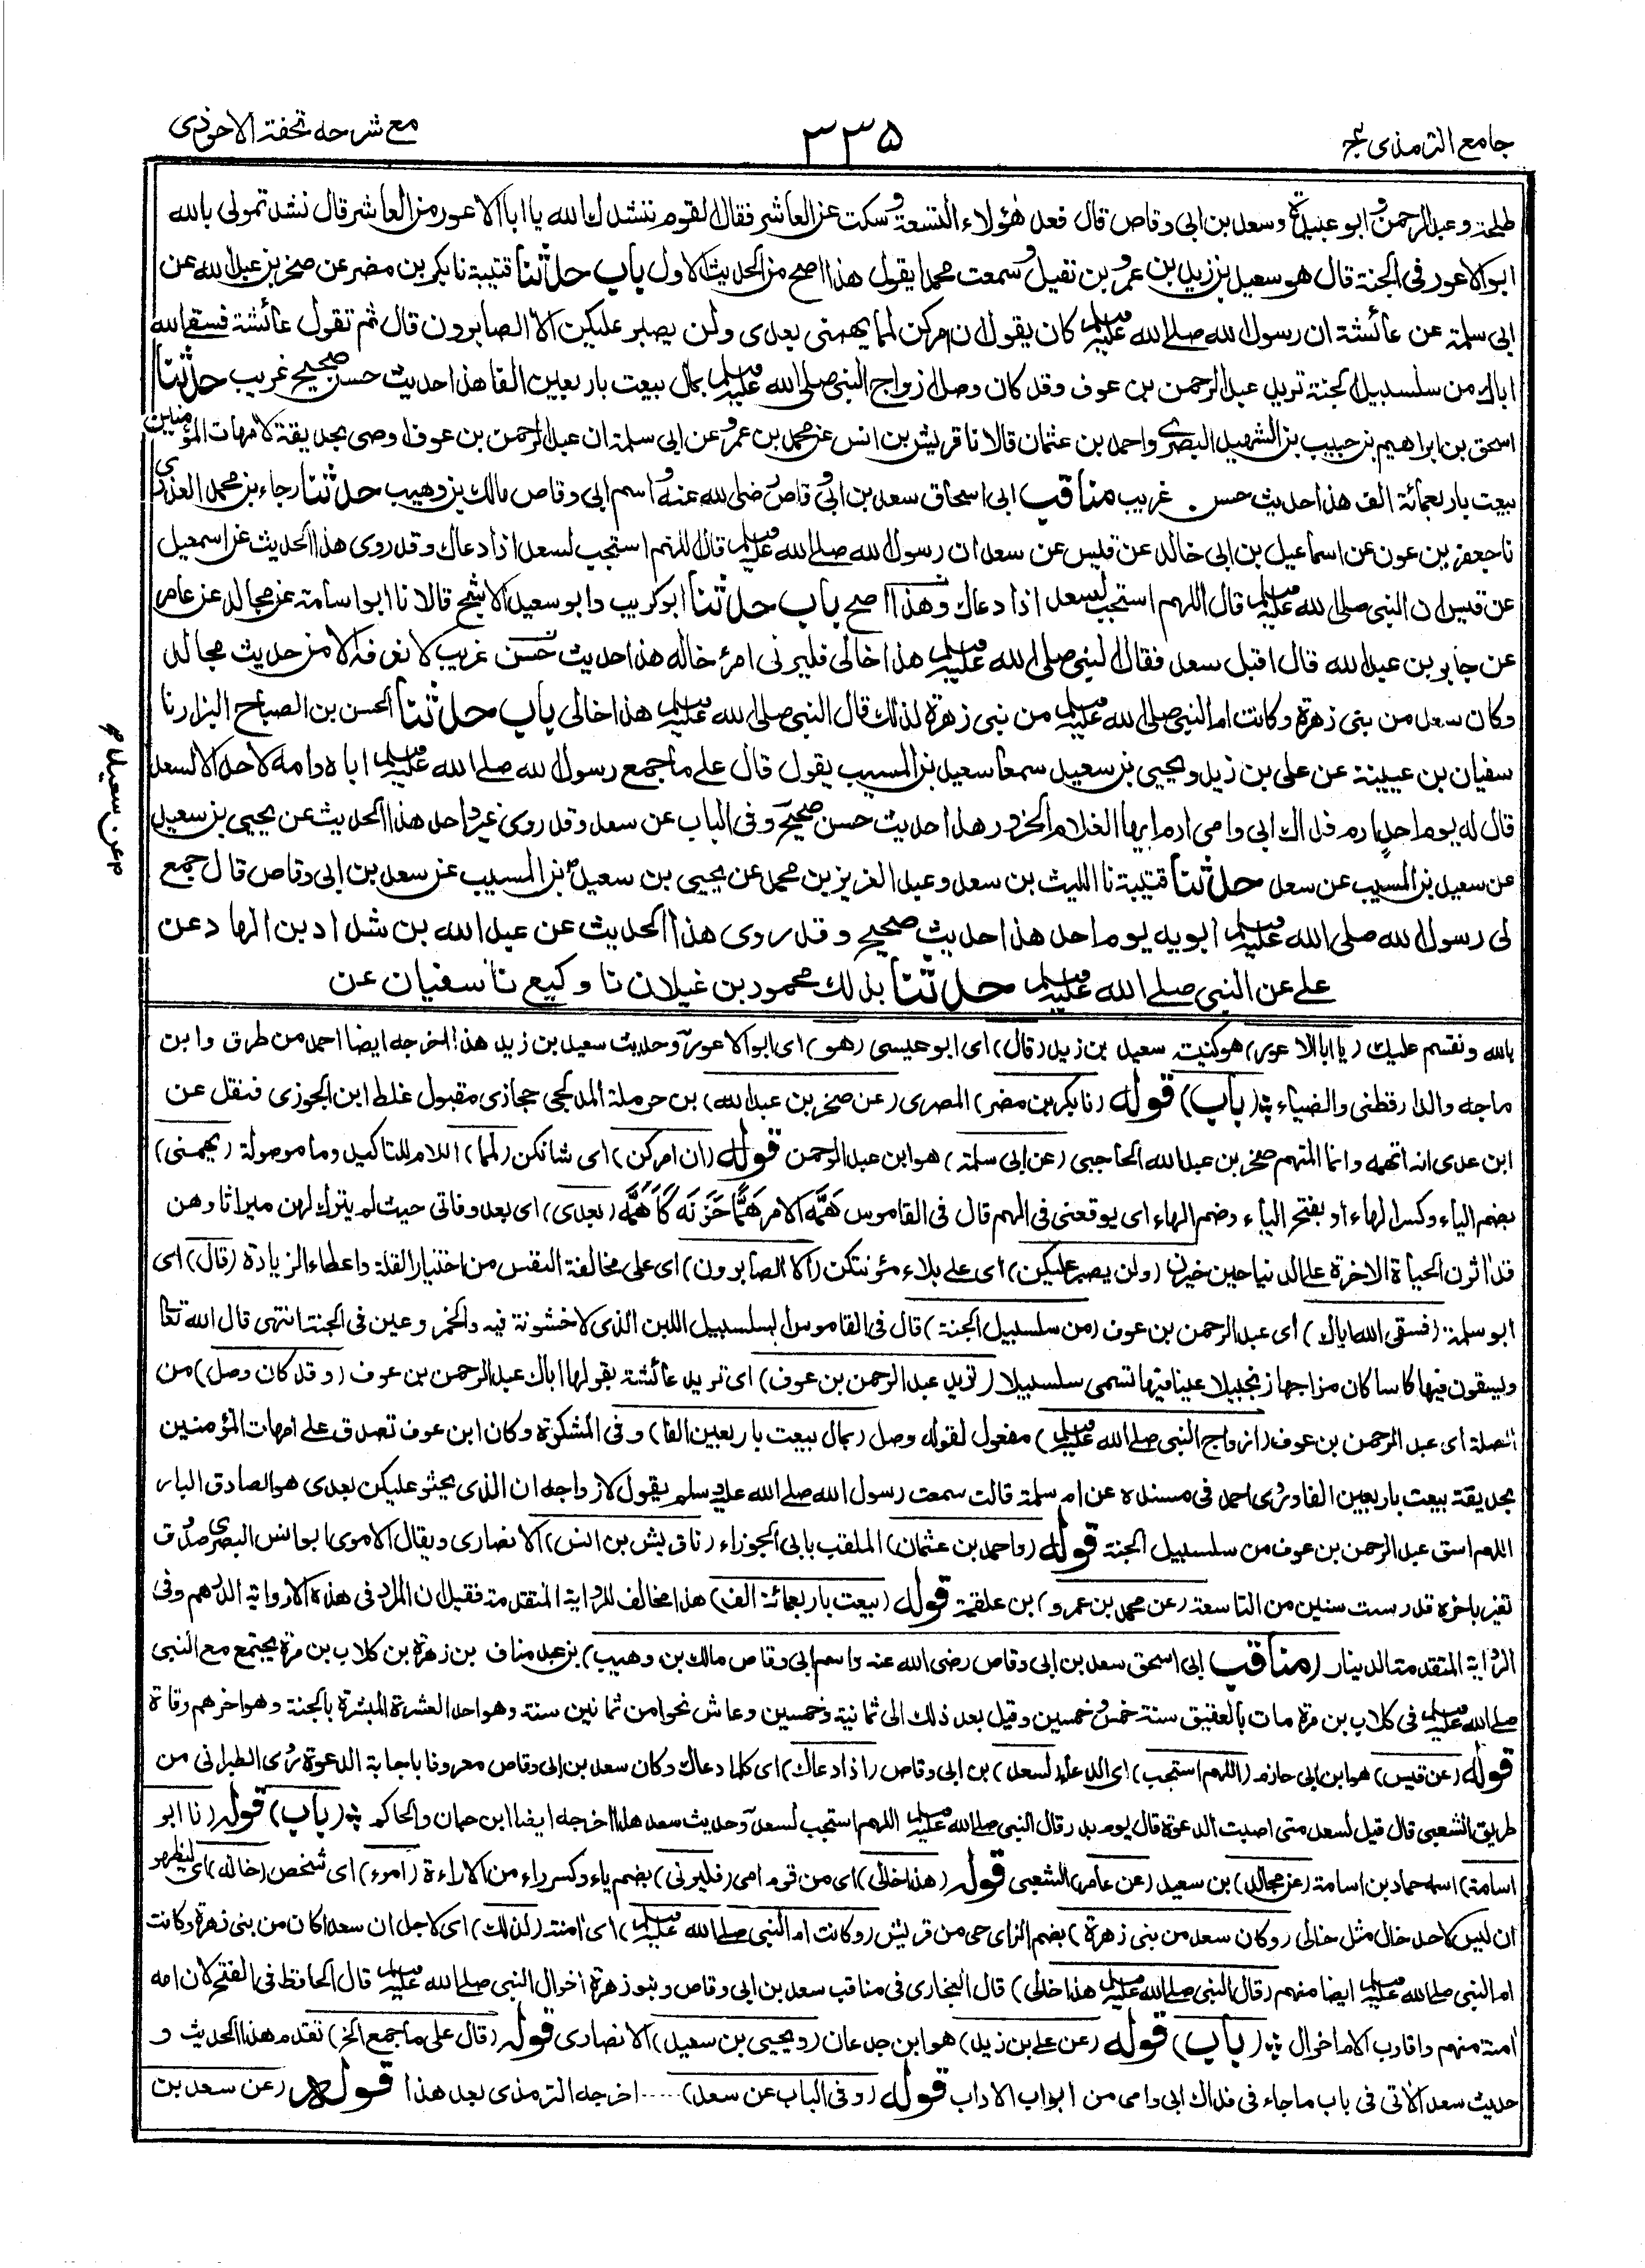 جامع الترمذی ج٤
٣٣٥
مع شرحه تحفة الاحوذی
طلحة وعبد الرحمن وابو عبیدة وسعد بن ابی وقاص قال فعد هؤلاء التسعة وسکت عن العاشر فقال القوم ننشدك الله یا ابا الاعور من العاشر قال نشدتمونی بالله
ابو الاعور فی الجنة قال هو سعید بن زید بن عمرو بن نفیل وسمعت محمدا یقول هذا اصح من الحدیث الاول باب حدثنا قتیبة نا بکر بن مضر عن صخر بن عبد الله عن
ابی سلمة عن عائشة ان رسول الله صلی الله علیه وسلم کان یقول ان امرکن لمما یهمنی بعدی ولن یصبر علیکن الا الصابرون قال ثم تقول عائشة فسقی الله
اباك من سلسبیل الجنة ترید عبد الرحمن بن عوف وقد کان وصل ازواج النبی صلی الله علیه وسلم بمال بیعت باربعین الفا هذا حدیث حسن صحیح غریب حدثنا
اسحق بن ابراهیم بن حبیب بن الشهید البصری واحمد بن عثمان قالا نا قریش بن انس عن محمد بن عمرو عن ابی سلمة ان عبد الرحمن بن عوف اوصی بحدیقة لامهات المؤمنین
بیعت باربعمائة الف هذا حدیث حسن غریب مناقب ابی اسحاق سعد بن ابی وقاص رضی الله عنه واسم ابی وقاص مالك بن وهیب حدثنا رجاء بن محمد العذری
نا جعفر بن عون عن اسماعیل بن ابی خالد عن قیس عن سعد ان رسول الله صلی الله علیه وسلم قال اللهم استجب لسعد اذا دعاك وقد روی هذا الحدیث عن اسمعیل
عن قیس ان النبی صلی الله علیه وسلم قال اللهم استجب لسعد اذا دعاك وهذا اصح باب حدثنا ابو کریب وابو سعید الاشج قالا نا ابو اسامة عن مجالد عن عامر
عن جابر بن عبد الله قال اقبل سعد فقال النبی صلی الله علیه وسلم هذا خالی فلیرنی امرؤ خاله هذا حدیث حسن غریب لا نعرفه الا من حدیث مجالد
وکان سعد من بنی زهرة وکانت ام النبی صلی الله علیه وسلم من بنی زهرة لذلك قال النبی صلی الله علیه وسلم هذا خالی باب حدثنا الحسن بن الصباح البزار نا
سفیان بن عیینة عن علی بن زید ویحیی بن سعید سمعا سعید بن المسیب یقول قال علی ما جمع رسول الله صلی الله علیه وسلم اباه وامه لاحد الا لسعد
قال له یوم احد ارم فداك ابی وامی ارم ایها الغلام الحزور هذا حدیث حسن صحیح وفی الباب عن سعد وقد روی غیر واحد هذا الحدیث عن یحیی بن سعید
عن سعید بن المسیب عن سعد حدثنا قتیبة نا اللیث بن سعد وعبد العزیز بن محمد عن یحیی بن سعید بن المسیب عن سعد بن ابی وقاص قال جمع
عن سعید
لی رسول الله صلی الله علیه وسلم ابویه یوم احد هذا حدیث صحیح وقد روی هذا الحدیث عن عبد الله بن شداد بن الهاد عن
علی عن النبی صلی الله علیه وسلم حدثنا بذلك محمود بن غیلان نا وکیع نا سفیان عن
بالله ونقسم علیك (یا ابا الاعور) هو کنیة سعید بن زید (قال) ای ابو عیسی (هو) ای ابو الاعور وحدیث سعید بن زید هذا اخرجه ایضا احمد من طرق وابن
ماجه والدارقطنی والضیاء (باب) قوله (نا بکر بن مضر) المصری (عن صخر بن عبد الله) بن حرملة المدلجی حجازی مقبول غلط ابن الجوزی فنقل عن
ابن عدی انه اتهمه وانما المتهم صخر بن عبد الله الحاجبی (عن ابی سلمة) هو ابن عبد الرحمن قوله (ان امرکن) ای شانکن (لمما) اللام للتاکید وما موصولة (یهمنی)
بضم الیاء وکسر الهاء او بفتح الیاء وضم الهاء ای یوقعنی فی الهم قال فی القاموس همه الامر هما حزنه کاهمه (بعدی) ای بعد وفاتی حیث لم یترك لهن میراثا وهن
قد اثرن الحیاة الاخرة علی الدنیا حین خیرن (ولن یصبر علیکن) ای علی بلاء مؤنتکن (الا الصابرون) ای علی مخالفة النفس من اختیار القلة واعطاء الزیادة (قال) ای
ابو سلمة (فسقی الله اباك) ای عبد الرحمن بن عوف (من سلسبیل الجنة) قال فی القاموس السلسبیل اللبن الذی لا خشونة فیه والخمر وعین فی الجنة انتهی قال الله تعا
ویسقون فیها کاسا کان مزاجها زنجبیلا عینا فیها تسمی سلسبیلا (ترید عبد الرحمن بن عوف) ای ترید عائشة بقولها اباك عبد الرحمن بن عوف (وقد کان وصل) من
الصلة ای عبد الرحمن بن عوف (ازواج النبی صلی الله علیه وسلم) مفعول لقوله وصل (بمال بیعت باربعین الفا) وفی المشکوة وکان ابن عوف تصدق علی امهات المؤمنین
بحدیقة بیعت باربعین الفا وروی احمد فی مسنده عن ام سلمة قالت سمعت رسول الله صلی الله علیه وسلم یقول لازواجه ان الذی یحثو علیکن بعدی هو الصادق البار
اللهم اسق عبد الرحمن بن عوف من سلسبیل الجنة قوله (واحمد بن عثمان) الملقب بابی الجوزاء (نا قریش بن انس) الانصاری ویقال الاموی ابو انس البصری صدوق
تغیر باخره قدر ست سنین من التاسعة (عن محمد بن عمرو) بن علقمة قوله (بیعت باربعمائة الف) هذا مخالف للروایة المتقدمة فقیل ان المراد فی هذه الروایة الدرهم وفی
الروایة المتقدمة الدینار (مناقب ابی اسحق سعد بن ابی وقاص رضی الله عنه واسم ابی وقاص مالك بن وهیب) بن عبد مناف بن زهرة بن کلاب بن مرة یجتمع مع النبی
صلی الله علیه وسلم فی کلاب بن مرة مات بالعقیق سنة خمس وخمسین وقیل بعد ذلك الی ثمانیة وخمسین وعاش نحوا من ثمانین سنة وهو احد العشرة المبشرة بالجنة وهو اخرهم وفاة
قوله (عن قیس) هو ابن ابی حازم (اللهم استجب) ای الدعاء (لسعد) بن ابی وقاص (اذا دعاك) ای کلما دعاك وکان سعد بن ابی وقاص معروفا باجابة الدعوة روی الطبرانی من
طریق الشعبی قال قیل لسعد متی اصبت الدعوة قال یوم بدر قال النبی صلی الله علیه وسلم اللهم استجب لسعد وحدیث سعد هذا اخرجه ایضا ابن حبان والحاکم (باب) قوله (نا ابو
اسامة) اسمه حماد بن اسامة (عن مجالد) بن سعید (عن عامر) الشعبی قوله (هذا خالی) ای من قوم امی (فلیرنی) بضم یاء وکسر راء من الاراءة (امرؤ) ای شخص (خاله) ای لیظهر
ان لیس لاحد خال مثل خالی (وکان سعد من بنی زهرة) بضم الزای حی من قریش (وکانت ام النبی صلی الله علیه وسلم) ای امنة (لذلك) ای لاجل ان سعدا کان من بنی زهرة وکانت
ام النبی صلی الله علیه وسلم ایضا منهم (قال النبی صلی الله علیه وسلم هذا خالی) قال البخاری فی مناقب سعد بن ابی وقاص وبنو زهرة اخوال النبی صلی الله علیه وسلم قال الحافظ فی الفتح لان امه
امنة منهم واقارب الام اخوال (باب) قوله (عن علی بن زید) هو ابن جدعان (ویحیی بن سعید) الانصاری قوله (قال علی ما جمع الخ) تقدم هذا الحدیث و
حدیث سعد الآتی فی باب ما جاء فی فداك ابی وامی من ابواب الاداب قوله (وفی الباب عن سعد) ..... اخرجه الترمذی بعد هذا قوله (عن سعد بن